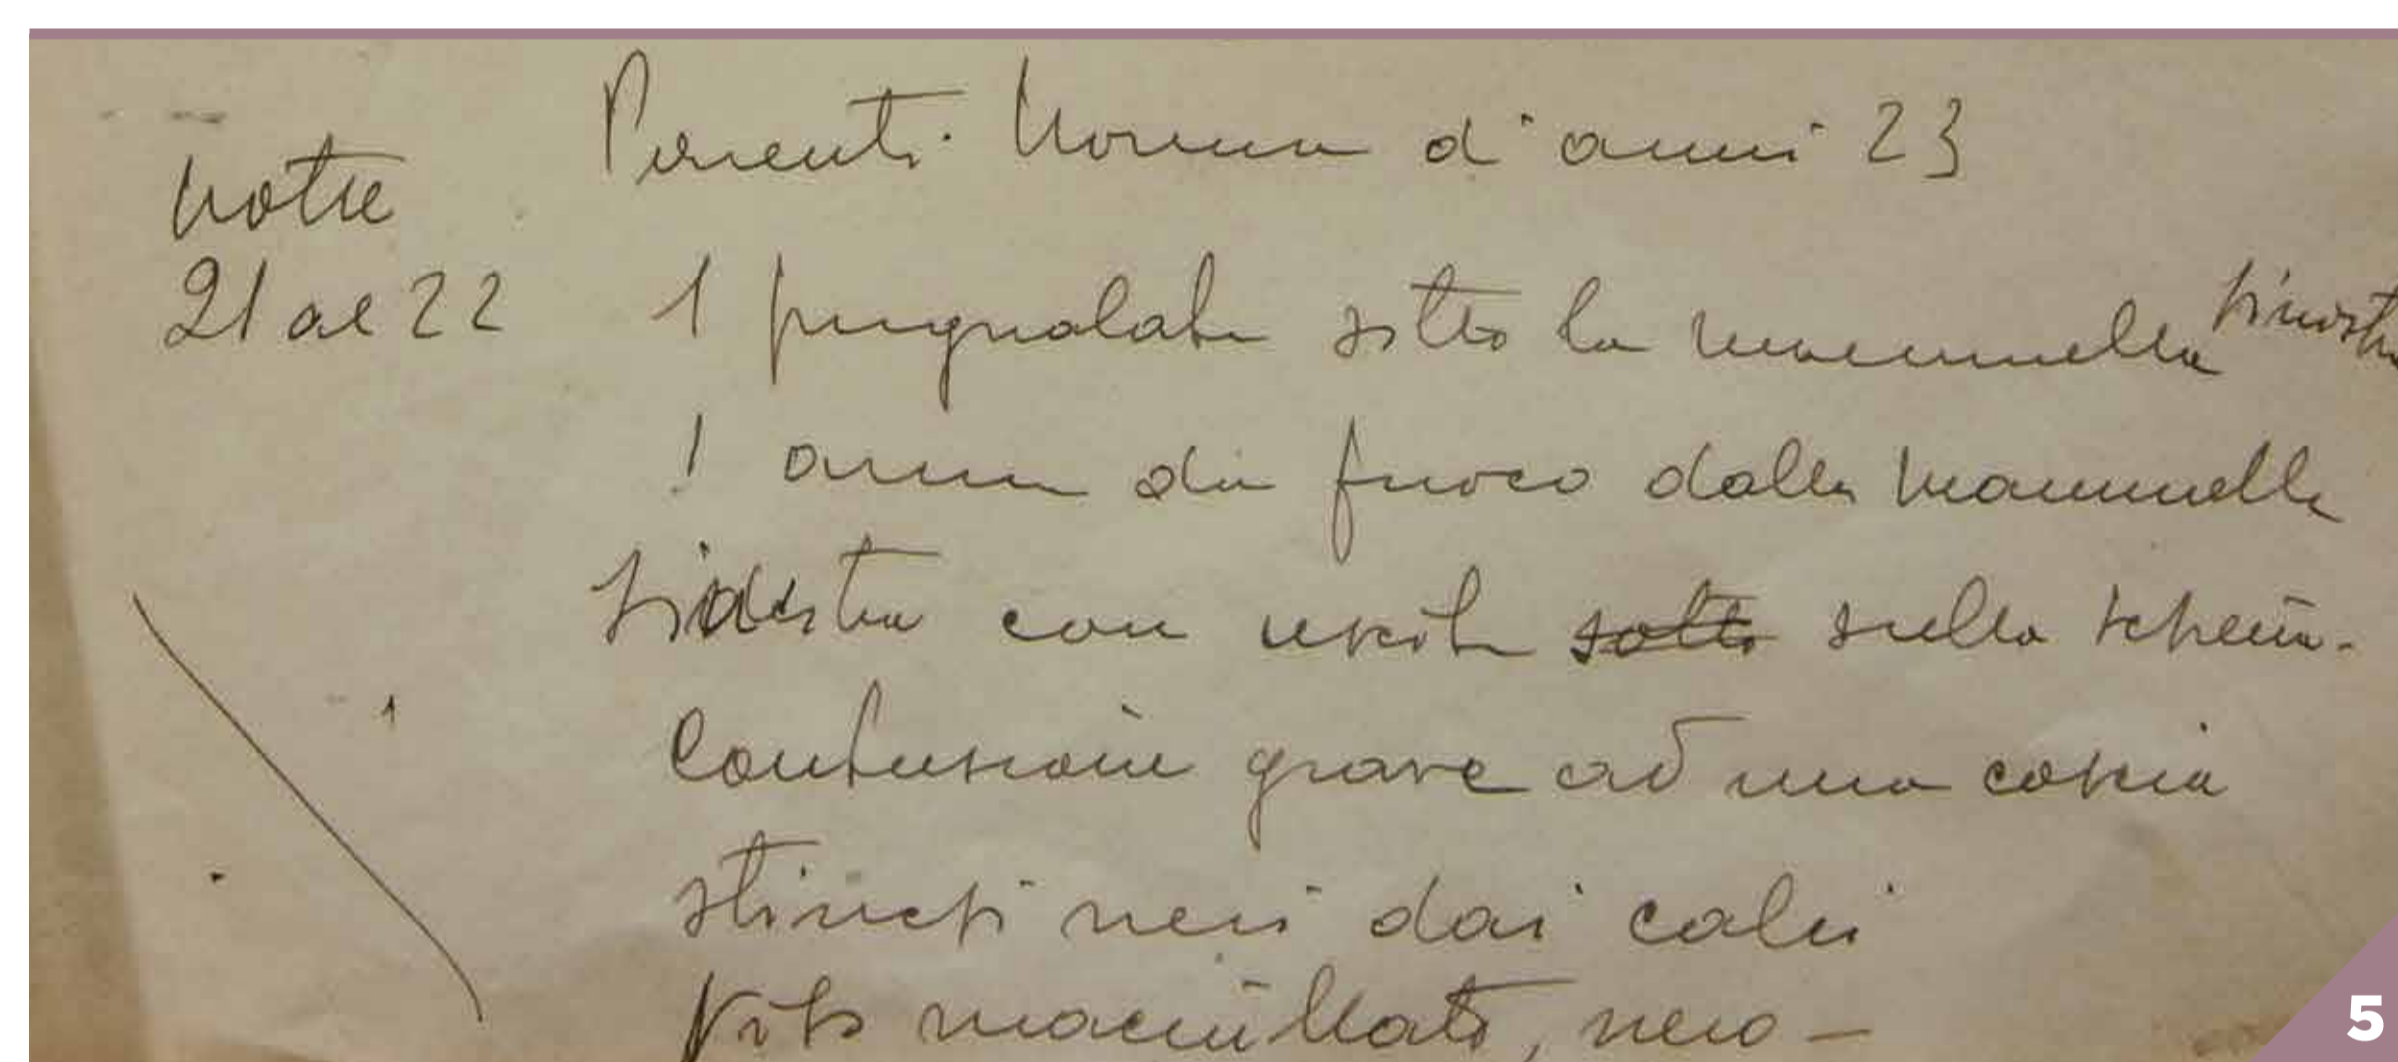 notte
21 al 22
Parenti Norma d'anni 23
1 pugnalata sotto la mammella sinistra
1 arma da fuoco dalla mammella
destra con uscita sotto sulla schiena.
Contusione grave ad una coscia
stinchi neri dai calci
Viso macullato, nero -
5